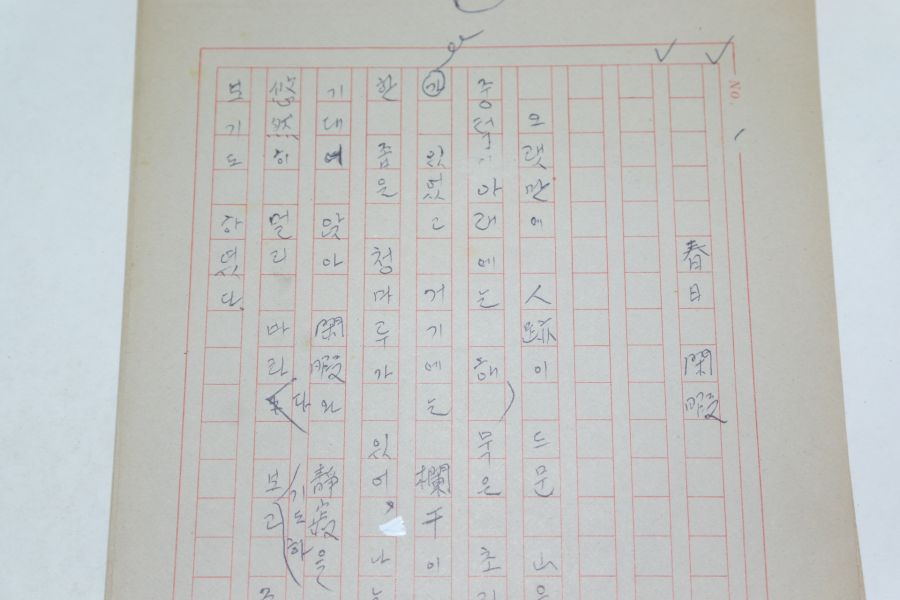 No.
春日 閑暇
오랫만에 人跡이 드문 山
중턱 아래에는 해묵은 초
가 있었고 거기에는 欄干이
한 좁은 청마루가 있어, 나는
기대 앉아 閑暇와 靜寂을
히 멀리 바라다 보기도 하고
보기도 하였다.